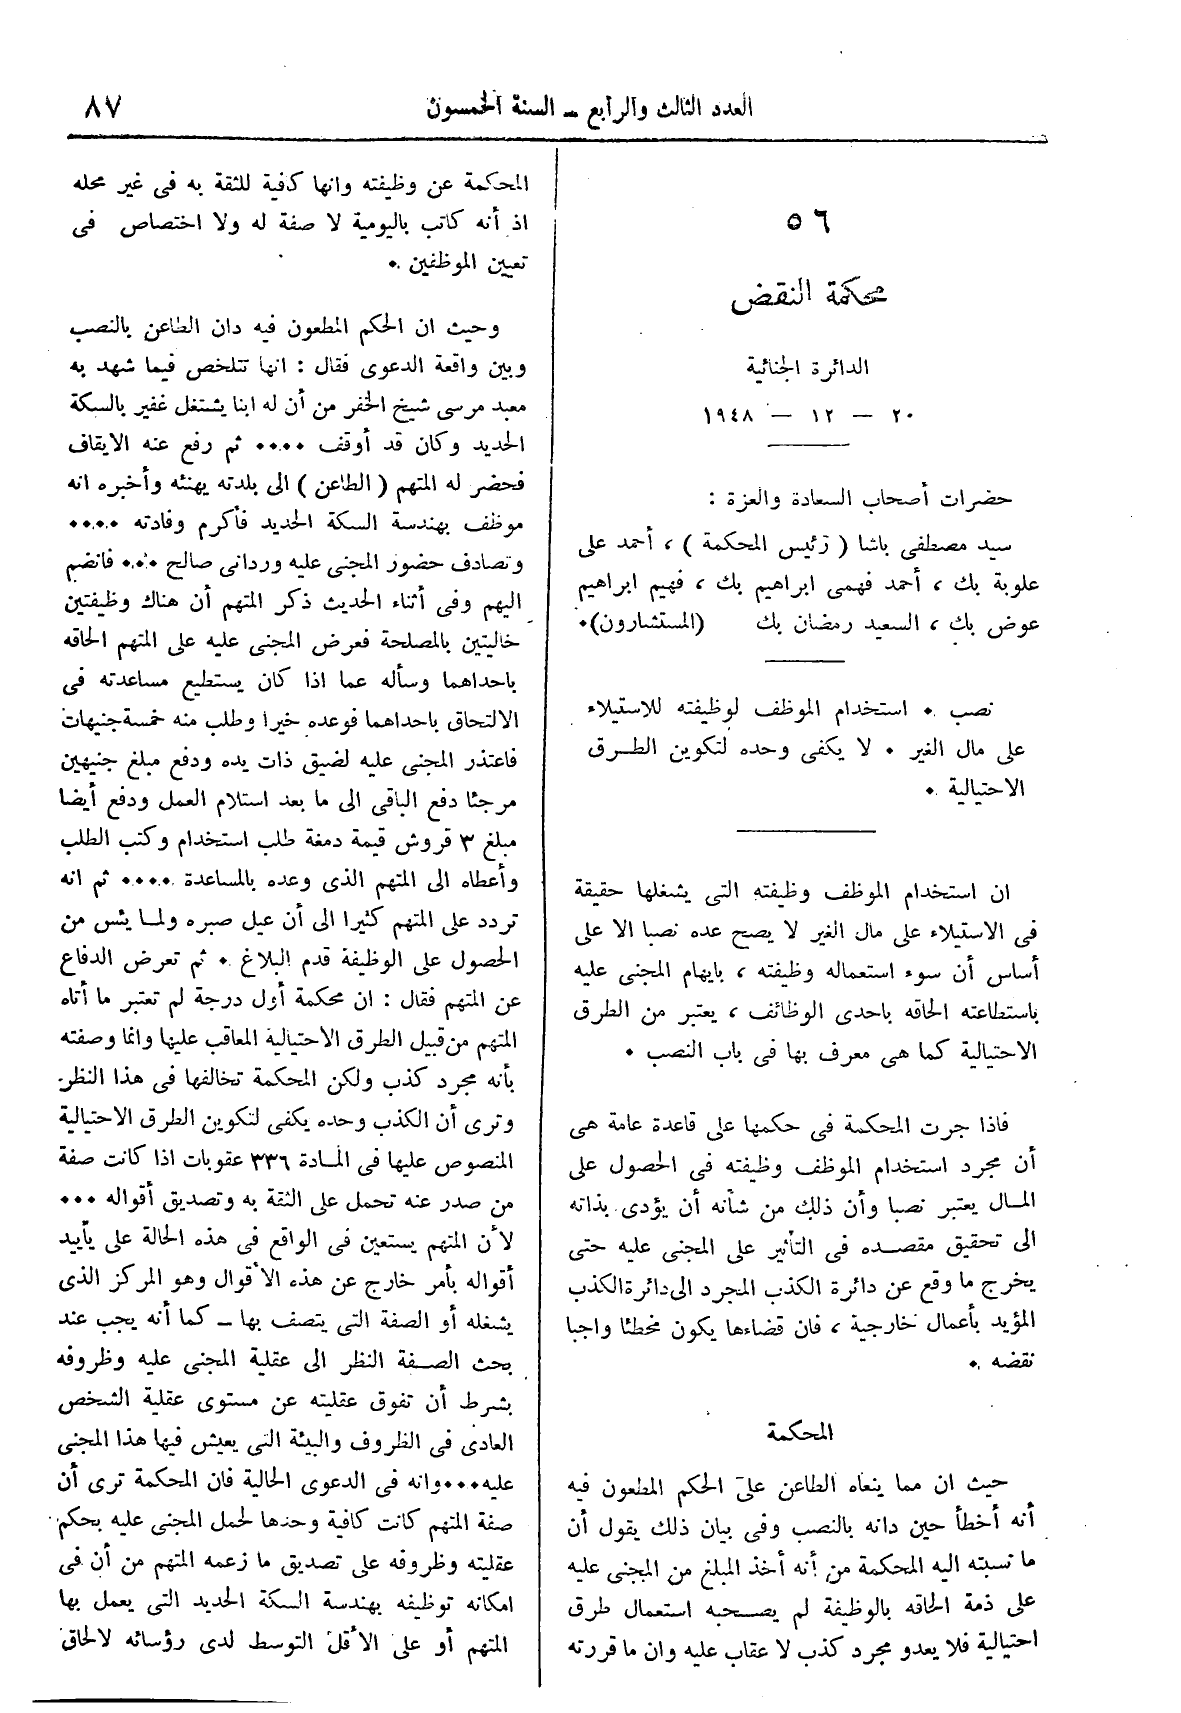 العدد الثالث والرابع ــ السنة الخمسون
٨٧
٥٦
محكمة النقض
الدائرة الجنائية
٢٠ — ١٢ — ١٩٤٨
حضرات أصحاب السعادة والعزة :
سيد مصطفى باشا ( رئيس المحكمة ) ، أحمد على
علوبة بك ، أحمد فهمى ابراهيم بك ، فهيم ابراهيم
عوض بك ، السعيد رمضان بك (المستشارون)٠
نصب ٠ استخدام الموظف لوظيفته للاستيلاء
على مال الغير ٠ لا يكفى وحده لتكوين الطرق
الاحتيالية ٠
ان استخدام الموظف وظيفته التى يشغلها حقيقة
فى الاستيلاء على مال الغير لا يصح عده نصبا الا على
أساس أن سوء استعماله وظيفته ، بايهام المجنى عليه
باستطاعته الحاقه باحدى الوظائف ، يعتبر من الطرق
الاحتيالية كما هى معرف بها فى باب النصب ٠
فاذا جرت المحكمة فى حكمها على قاعدة عامة هى
أن مجرد استخدام الموظف وظيفته فى الحصول على
المال يعتبر نصبا وأن ذلك من شأنه أن يؤدى بذاته
الى تحقيق مقصده فى التأثير على المجنى عليه حتى
يخرج ما وقع عن دائرة الكذب المجرد الى دائرة الكذب
المؤيد بأعمال خارجية ، فان قضاءها يكون مخطئا واجبا
نقضه ٠
المحكمة
حيث ان مما ينعاه الطاعن على الحكم المطعون فيه
أنه أخطأ حين دانه بالنصب وفى بيان ذلك يقول أن
ما نسبته اليه المحكمة من أنه أخذ المبلغ من المجنى عليه
على ذمة الحاقه بالوظيفة لم يصحبه استعمال طرق
احتيالية فلا يعدو مجرد كذب لا عقاب عليه وان ما قررته
المحكمة عن وظيفته وانها كافية للثقة به فى غير محله
اذ أنه كاتب باليومية لا صفة له ولا اختصاص فى
تعيين الموظفين ٠
وحيث ان الحكم المطعون فيه دان الطاعن بالنصب
وبين واقعة الدعوى فقال : انها تتلخص فيما شهد به
معبد مرسى شيخ الخفر من أن له ابنا يشتغل غفير بالسكة
الحديد وكان قد أوقف ٠٠٠٠ ثم رفع عنه الايقاف
فحضر له المتهم ( الطاعن ) الى بلدته يهنئه وأخبره انه
موظف بهندسة السكة الحديد فأكرم وفادته ٠٠٠٠
وتصادف حضور المجنى عليه وردانى صالح ٠٠٠ فانضم
اليهم وفى أثناء الحديث ذكر المتهم أن هناك وظيفتين
خاليتين بالمصلحة فعرض المجنى عليه على المتهم الحاقه
باحداهما وسأله عما اذا كان يستطيع مساعدته فى
الالتحاق باحداهما فوعده خيرا وطلب منه خمسة جنيهات
فاعتذر المجنى عليه لضيق ذات يده ودفع مبلغ جنيهين
مرجئا دفع الباقى الى ما بعد استلام العمل ودفع أيضا
مبلغ ٣ قروش قيمة دمغة طلب استخدام وكتب الطلب
وأعطاه الى المتهم الذى وعده بالمساعدة ٠٠٠٠ ثم انه
تردد على المتهم كثيرا الى أن عيل صبره ولما يئس من
الحصول على الوظيفة قدم البلاغ ٠ ثم تعرض الدفاع
عن المتهم فقال : ان محكمة أول درجة لم تعتبر ما أتاه
المتهم من قبيل الطرق الاحتيالية المعاقب عليها وانما وصفته
بأنه مجرد كذب ولكن المحكمة تخالفها فى هذا النظر
وترى أن الكذب وحده يكفى لتكوين الطرق الاحتيالية
المنصوص عليها فى المادة ٣٣٦ عقوبات اذا كانت صفة
من صدر عنه تحمل على الثقة به وتصديق أقواله ٠٠٠
لأن المتهم يستعين فى الواقع فى هذه الحالة على تأييد
أقواله بأمر خارج عن هذه الأقوال وهو المركز الذى
يشغله أو الصفة التى يتصف بها ــ كما أنه يجب عند
بحث الصفة النظر الى عقلية المجنى عليه وظروفه
بشرط أن تفوق عقليته عن مستوى عقلية الشخص
العادى فى الظروف والبيئة التى يعيش فيها هذا المجنى
عليه٠٠٠وانه فى الدعوى الحالية فان المحكمة ترى أن
صفة المتهم كانت كافية وحدها لحمل المجنى عليه بحكم
عقليته وظروفه على تصديق ما زعمه المتهم من أن فى
امكانه توظيفه بهندسة السكة الحديد التى يعمل بها
المتهم أو على الأقل التوسط لدى رؤسائه لالحاق